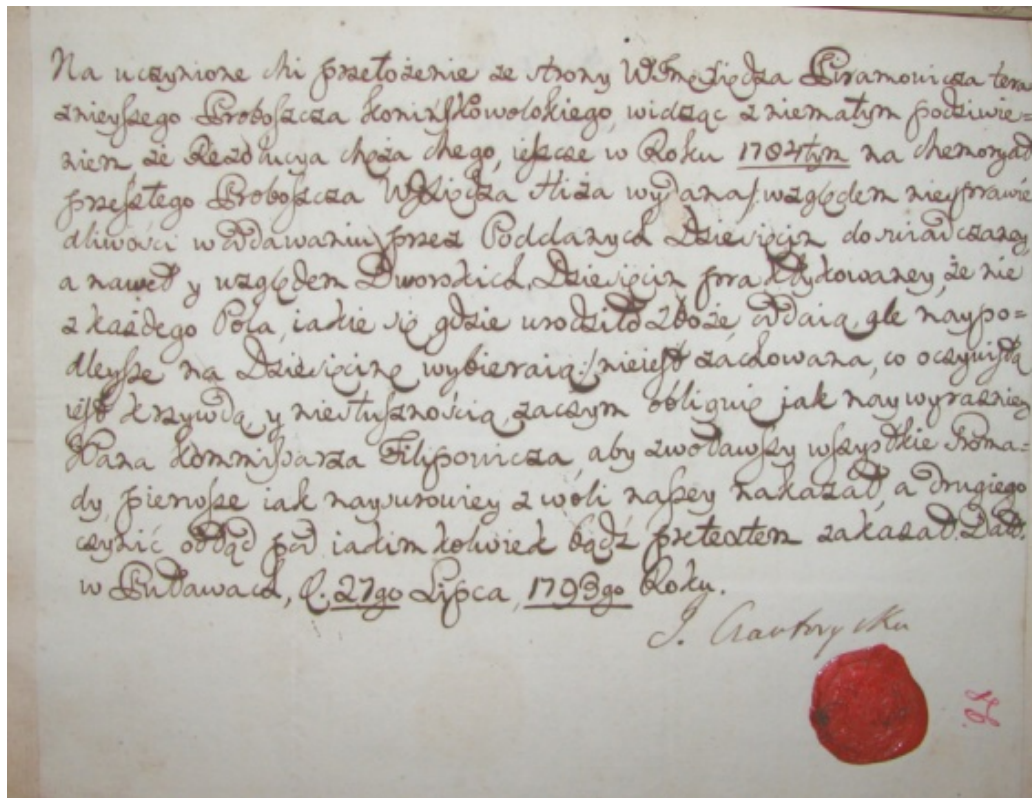 Na uczynione Mi przełożenie ze strony WJmc Xiędza Piramowicza tera
znieyszego Proboszcza Końskowolskiego, widząc z niemałym podziwie=
niem, że Rezolucya moia mego, ieszcze w Roku 1784tym na Memoryał
przeszłego Proboszcza WXiędza wydana /: względem niesprawie
dliwości w oddawaniu przez Poddanych Dziesięcin doswiadczaney
a nawet y względem Dworskich Dziesięcin praktykowaney, że nie
z każdego Pola, iakie się gdzie urodziło zboże oddaią, ale naypo=
dleysze na Dziesięcinę wybieraią :/ nieiest zachowana, co oczywistą
iest krzywdą, y niesłusznością, zaczym obliguię jak naywyraźniey
Pana Kommissarza Filipowicza, aby zwoławszy wszystkie Groma=
dy, pierwsze iak naysurowiey z woli naszey nakazał, a drugiego
czynić odtąd pod iakim kolwiek bądź pretextem zakazał. Datt.
w Puławach, D. 27go Lipca, 1793go Roku.
J. Czartoryski